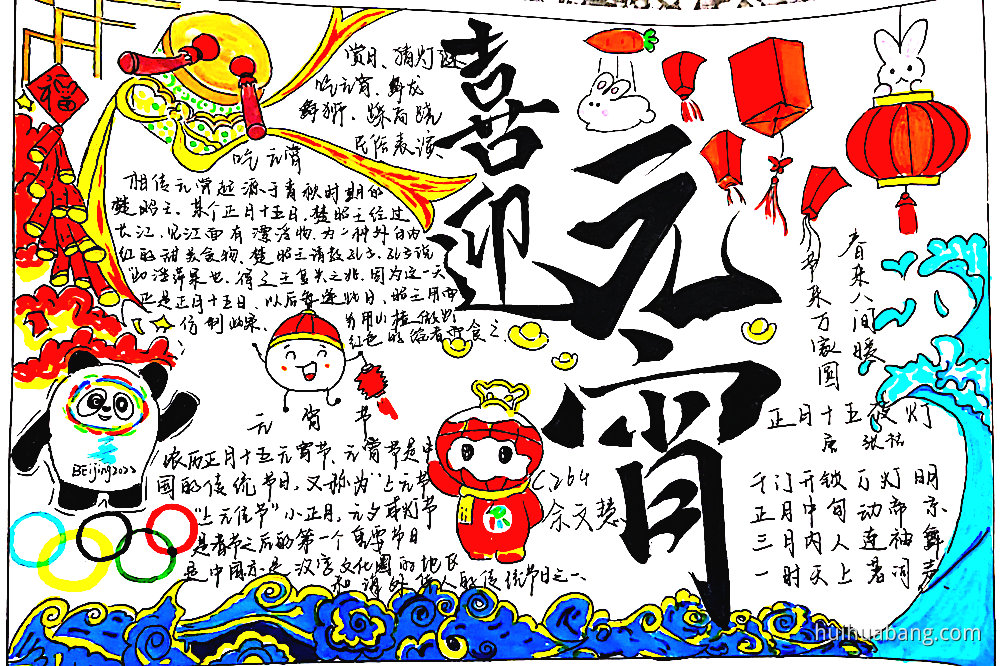 福
喜迎
元宵
赏月、猜灯谜
吃元宵、舞龙
舞狮、踩高跷
民俗表演
吃元宵
相传元宵起源于春秋时期的
楚昭王。某个正月十五日，楚昭王经过
长江，见江面有漂浮物，为一种外白内
红的甜美食物。楚昭王请教孔子，孔子说
正是正月十五日，以后每逢此日，昭王
元宵节
农历正月十五元宵节、元宵节是中
国的传统节日，又称为“上元节”
“上元佳节”小正月、元夕或灯节
是春节之后的第一个重要节日
是中国亦是汉字文化圈的地区
和海外华人的传统节日之一
BEijing2022
C264
余文慧
春来人间暖
节来万家圆
正月十五夜灯
唐 张祜
千门开锁万灯明
正月中旬动帝京
三月内人连袖舞
一时天上著词声
huihuabang.com